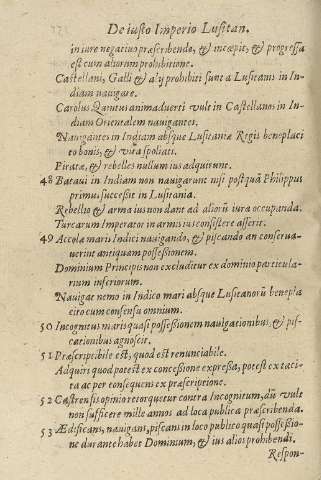 De iusto Imperio Lusitan.
in iure negatiuo præscribendo, & incepit, & progressa
est cum aliorum prohibitione.
Castellani, Galli & alij prohibiti sunt a Lusitanis in In-
diam nauigare.
Carolus Quintus animaduerti vult in Castellanos in In-
diam Orientalem nauigantes.
Nauigantes in Indiam absque Lusitaniæ Regis beneplaci
to bonis, & vita spoliati.
Piratæ, & rebelles nullum ius adquirunt.
48 Bataui in Indiam non nauigarunt nisi postquã Philippus
primus successit in Lusitania.
Rebellio & arma ius non dant ad aliorũ iura occupanda.
Turcarum Imperator in armis ius consistere asserit.
49 Accolæ maris Indici nauigando, & piscando an conserua-
uerint antiquam possessionem.
Dominium Principis non excluditur ex dominio particula-
rium inferiorum.
Nauigat nemo in Indico mari absque Lusitanorũ benepla
cito cum consensu omnium.
50 Incognitus maris quasi possessionem nauigationibus, & pis-
cationibus agnoscit.
51 Præscriptibile est, quod est renunciabile.
Adquiri quod potest ex concessione expressa, potest ex taci-
ta ac per consequens ex præscriptione.
52 Castrensis opinio retorquetur contra Incognitum, dũ vult
non sufficere mille annos ad loca publica præscribenda.
53 Ædificans, nauigans, piscans in loco publico quasi possessio-
ne durante habet Dominium, & ius alios prohibendi.
Respon-